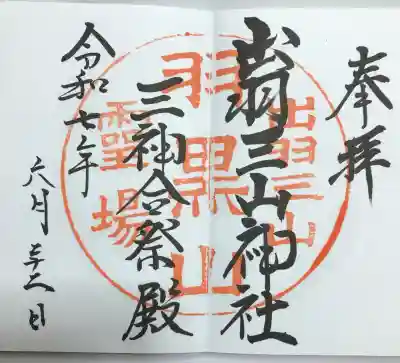 奉拝
出羽三山神社
三神合祭殿
令和七年
六月 日
出羽三山
羽黒山
靈場